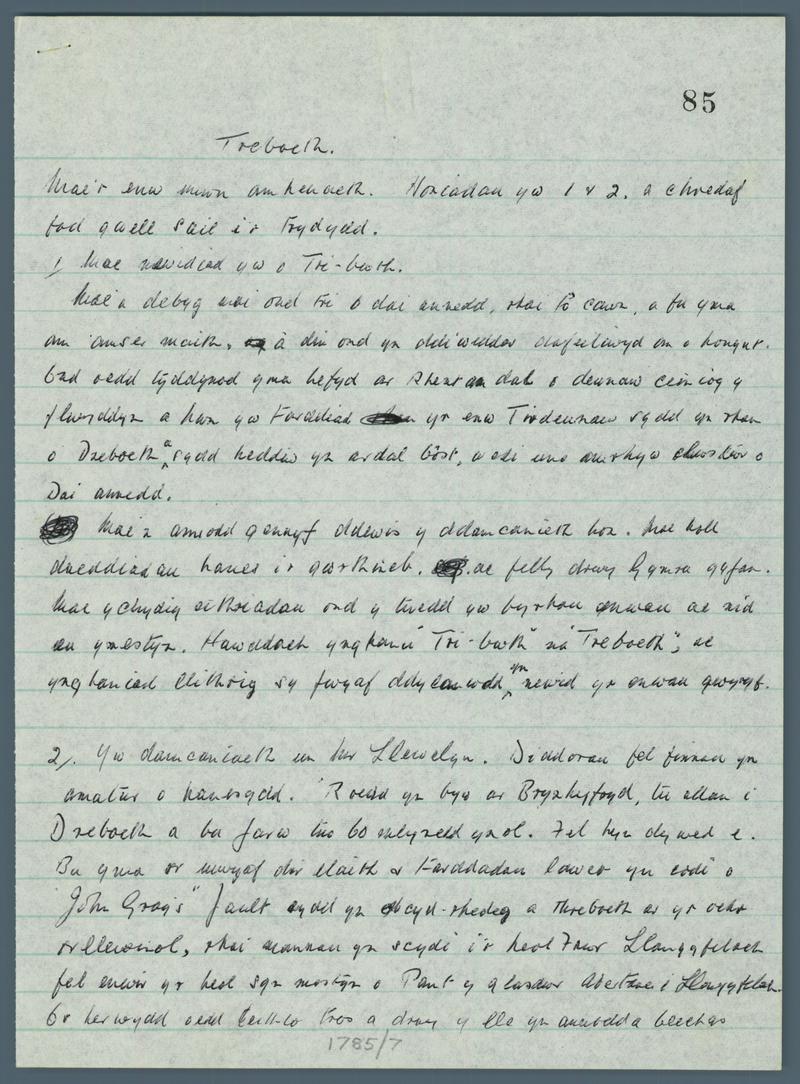 85
Treboeth.
Mae'r enw mewn amheuaeth. Honiadau yw 1 & 2. a chredaf
fod gwell sail i'r trydydd.
1/ Mae newidiad yw o Tri-bwth.
Mae'n debyg mai ond tri o dai annedd, rhai to cawn, a fu yma
am amser maith, a dim ond yn ddiweddar dafeiliwyd un o honynt.
Ond oedd tyddynod yma hefyd ar rhent an dal o deunaw ceiniog y
flwyddyn a hwn yw tarddiad yr enw Tirdeunaw sydd yn rhan
o Dreboeth a sydd heddiw yn ardal bost, wedi uno amrhyw clwstwr o
Dai annedd.
Mae'n amodd gennyf ddewis y ddamcaniaeth hon. Mae holl
dueddiadau hanes i'r gwrthineb. ac felly drwy Gymru gyfan.
Mae ychydig eithriadau ond y duedd yw byrhau enwau ac nid
eu ymestyn. Hawddach ynghanu "Tri-bwth" na "Treboeth", ac
ynghaniad llithrig sy fwyaf ddylanwadd yn newid yr enwau gwreig.
2/. Yw damcaniaeth un Mr Llewelyn. Diddoran fel finnau yn
amatur o hanesydd. 'Roedd yn byw ar Brynhyfryd, tu allan i
Dreboeth a bu farw tua 60 mlynedd ynol. Fel hyn dywed e.
Bu yma or mwyaf dir llaith & tarddadau lawer yn codi o
"John Gray's" fault sydd yn cyd-rhedeg a Threboeth ar yr ochr
orllewinol, rhai mannau yn scydi i'r heol Fawr Llangyfelach
fel enwir yr heol syn mostyn o Pant y glasdwr Abertawe i Llangyfelach.
Or herwydd oedd tros a drwy y lle yn
1785/7